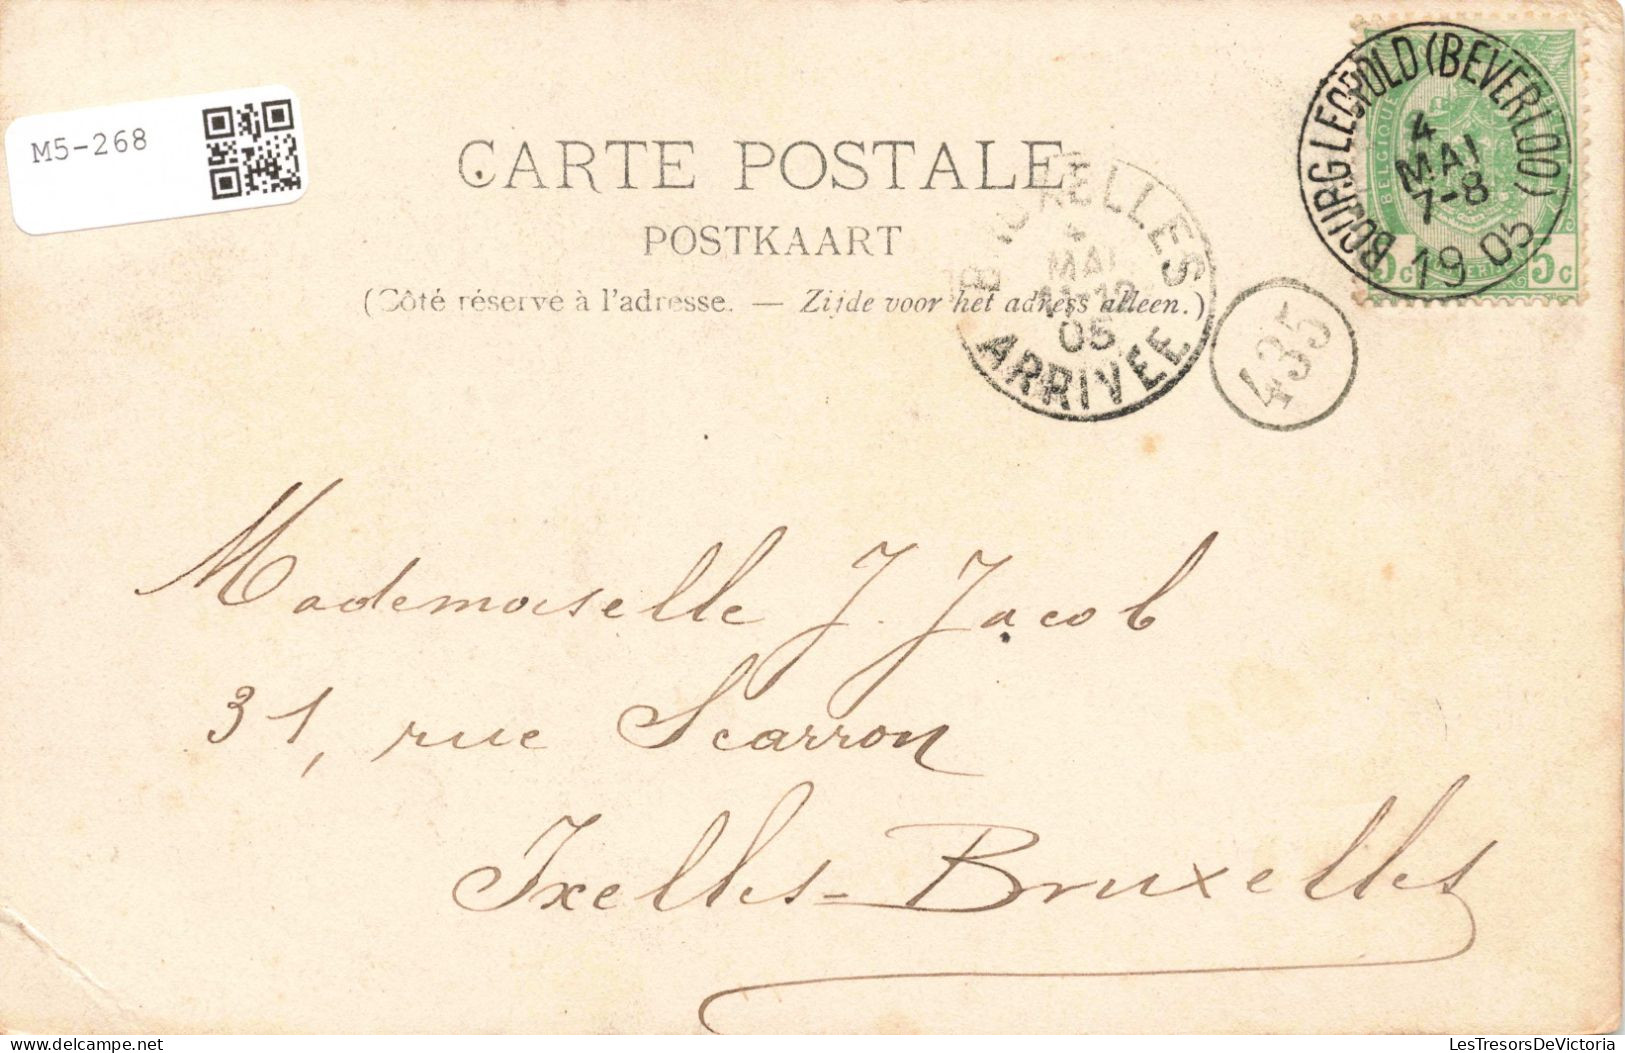 M5-268
CARTE POSTALE
POSTKAART
(Côté réservé à l'adresse. — Zijde voor het adress alleen.)
BRUXELLES
MAI
11-12
05
ARRIVEE
435
BOURG LEOPOLD (BEVERLOO)
4
MAI
7-8
1905
BELGIQUE
5c 5c
Mademoiselle J. Jacob
31, rue Scarron
Ixelles-Bruxelles
delcampe.net
LesTresorsDeVictoria